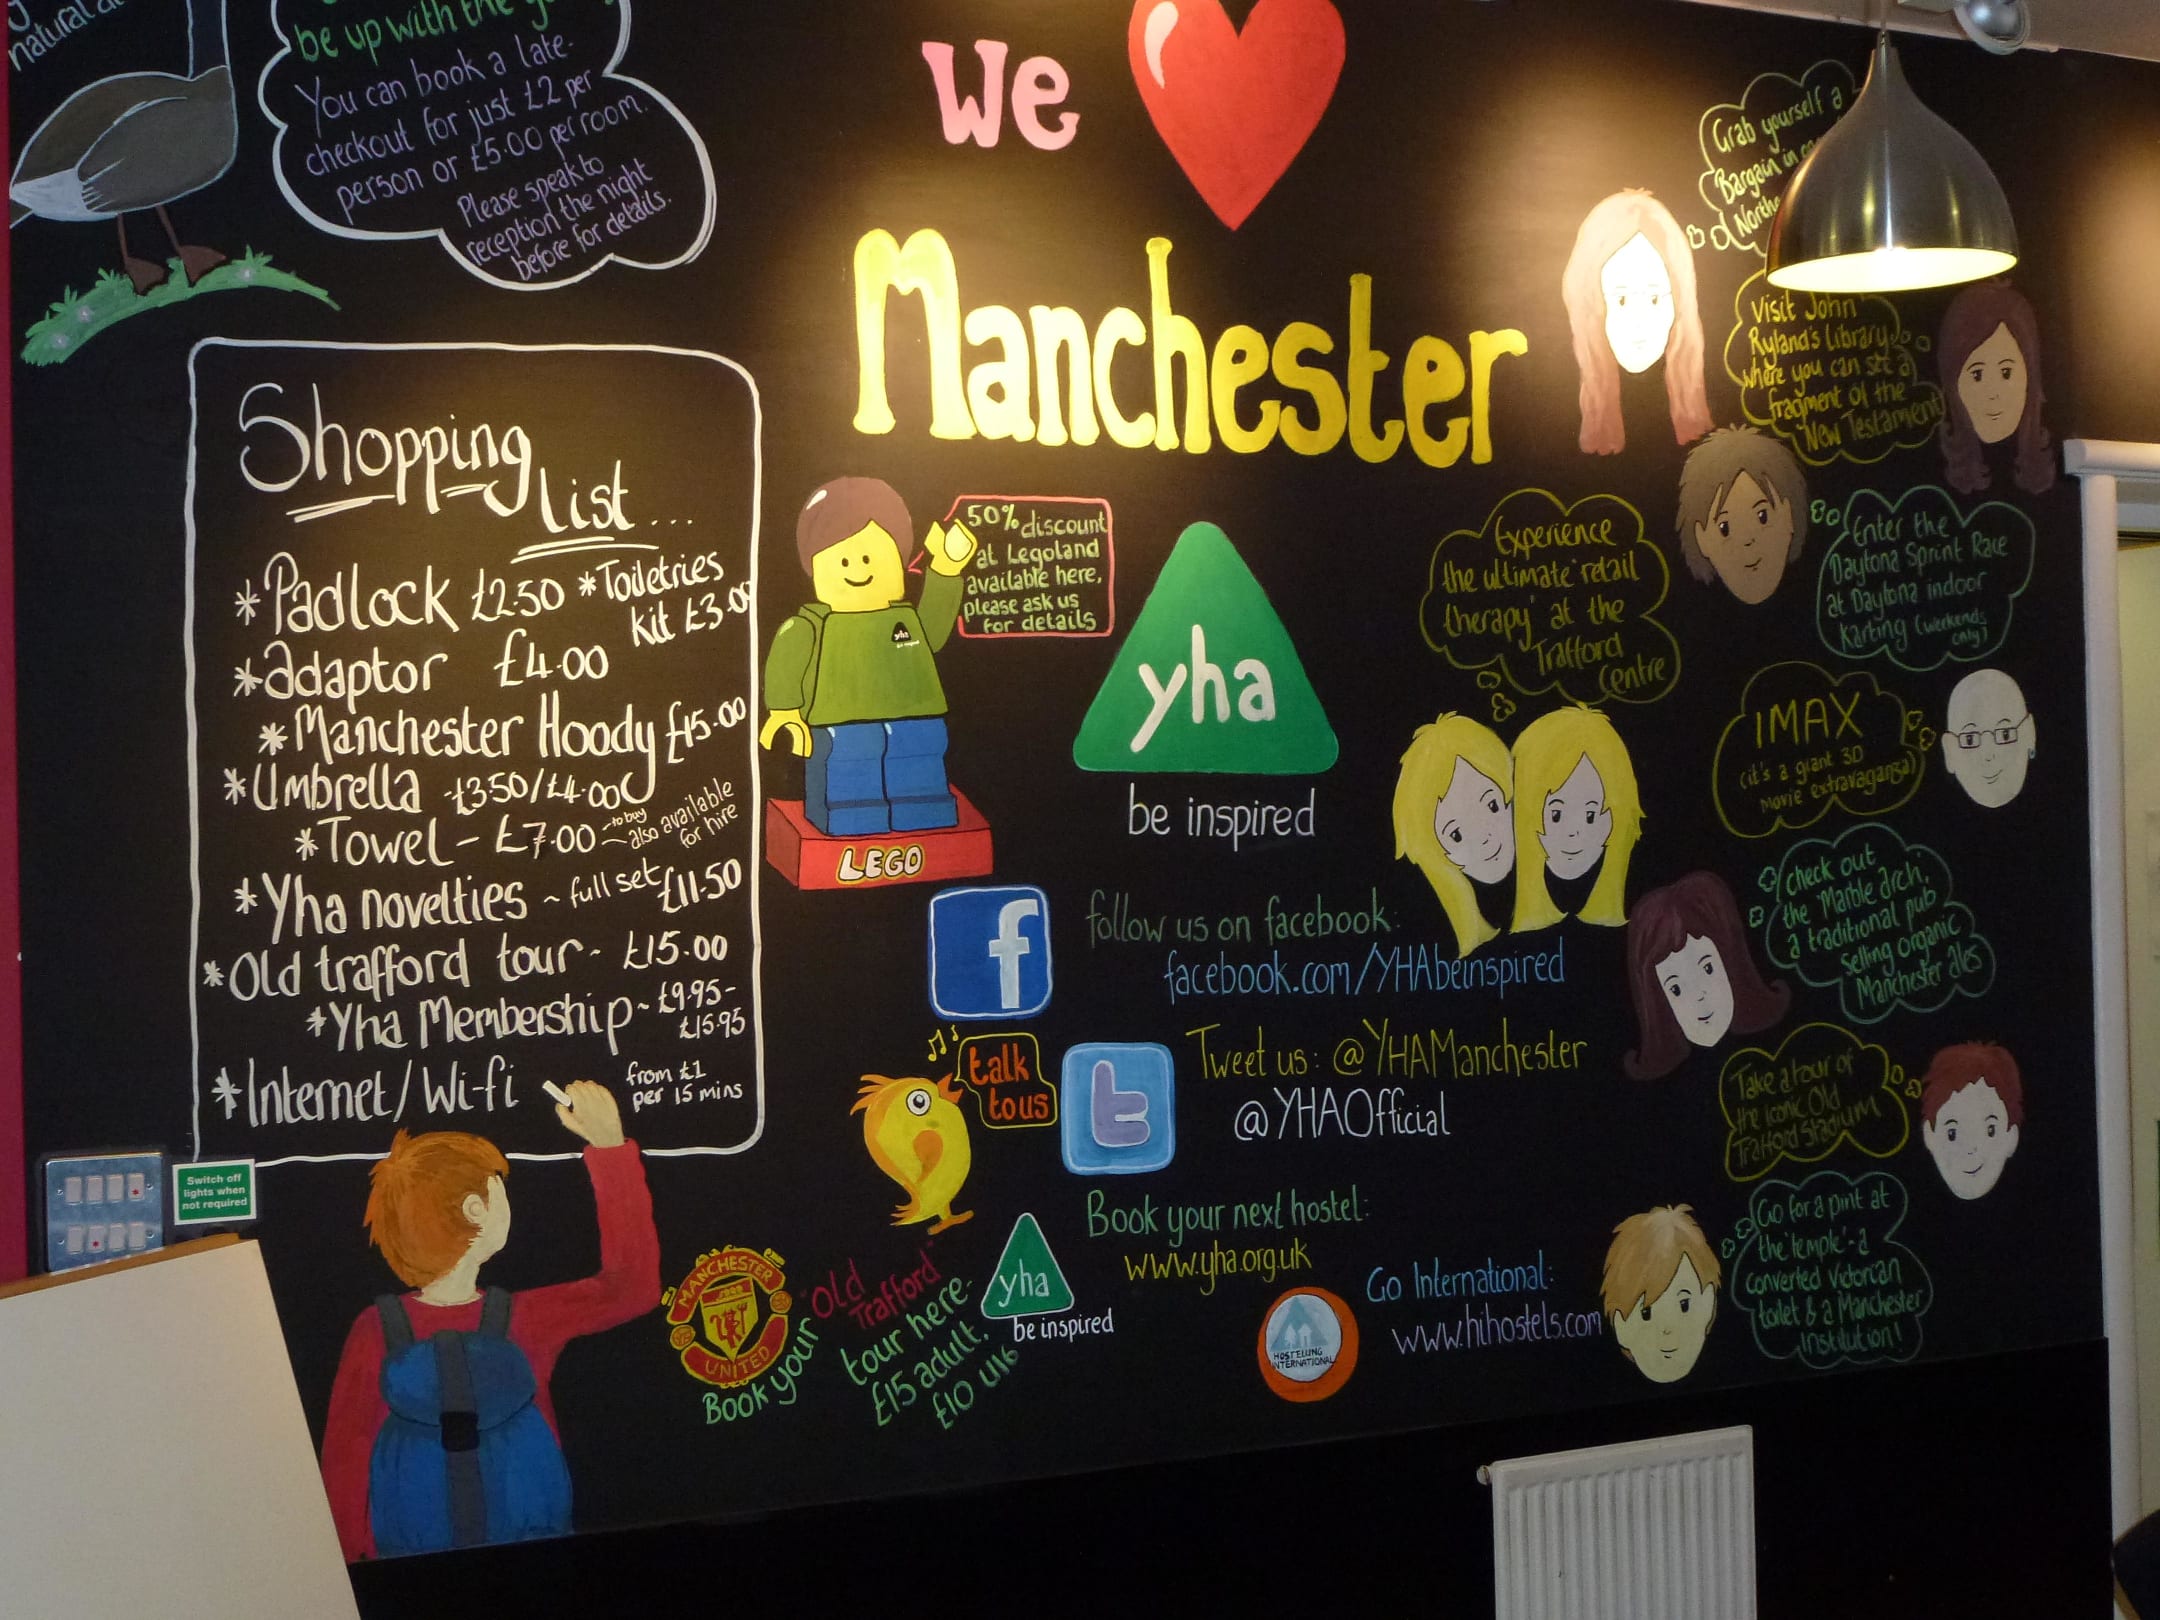 natural
be up with the
You can book a late-
checkout for just £2 per
person or £5.00 per room.
Please speak to
reception the night
before for details.
We
Manchester
Shopping
List...
*Padlock £2.50 *Toiletries
kit £3.00
*adaptor £4.00
*Manchester Hoody £15.00
*Umbrella -£3.50/£4.00
*Towel - £7.00 ~ to buy
also available
for hire
*Yha novelties ~ full set £11.50
*Old trafford tour - £15.00
*Yha Membership ~ £9.95-
£15.95
*Internet/Wi-fi from £1
per 15 mins
Switch off
lights when
not required
50% discount
at Legoland
available here,
please ask us
for details
yha
LEGO
yha
be inspired
f
follow us on facebook:
facebook.com/YHAbeinspired
talk
to us
t
Tweet us: @YHAManchester
@YHAOfficial
Book your next hostel:
www.yha.org.uk
yha
be inspired
Go International:
www.hihostels.com
HOSTELLING
INTERNATIONAL
MANCHESTER
UNITED
Book your "Old
Trafford"
tour here-
£15 adult.
£10 u16
Grab yourself a
Bargain in
Visit John
Ryland's Library
where you can see a
fragment of the
New Testament
Experience
the ultimate 'retail
therapy' at the
Trafford
Centre
Enter the
Daytona Sprint Race
at Daytona indoor
Karting (weekends
only)
IMAX
(it's a giant 3D
movie extravaganza)
Check out
the 'Marble arch',
a traditional pub
selling organic
Manchester ales
Take a tour of
the iconic Old
Trafford Stadium
Go for a pint at
the 'temple' - a
converted Victorian
toilet & a Manchester
Institution!